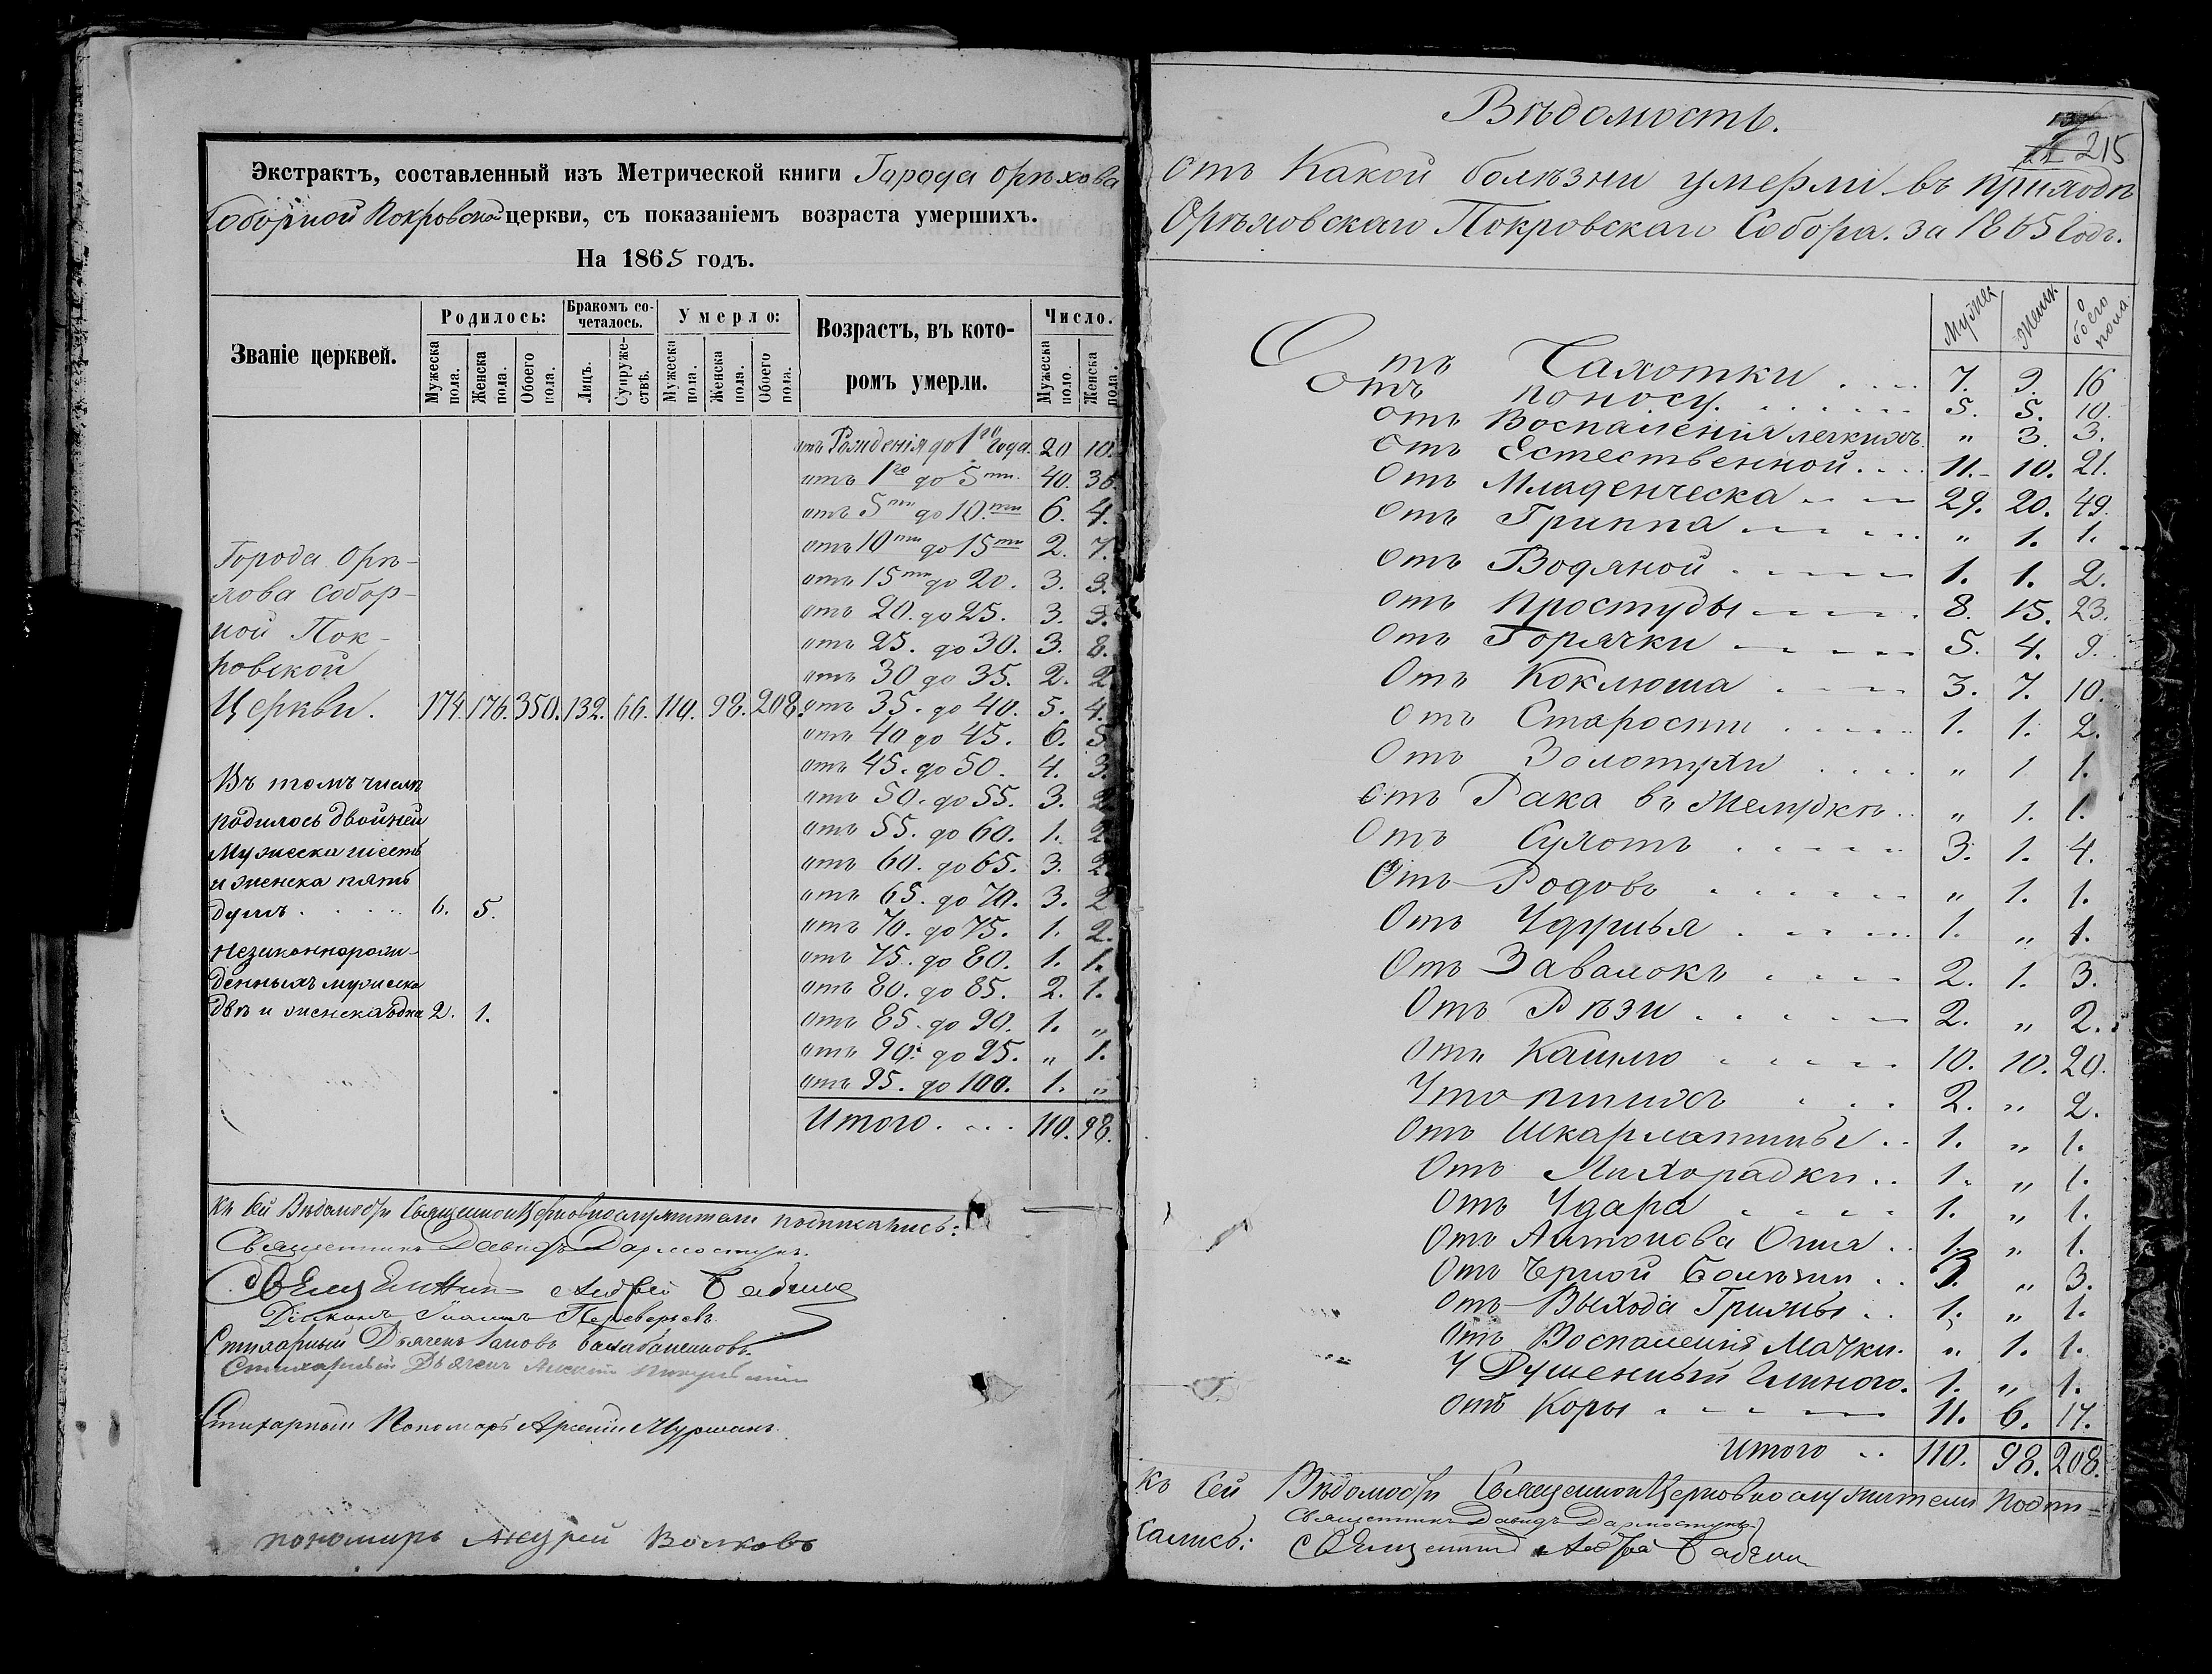 Экстрактъ, составленный изъ Метрической книги Города Орѣхова
Соборной Покровской церкви, съ показаніемъ возраста умершихъ.
На 1865 годъ.
Званіе церквей.
Родилось:
Бракомъ сочеталось.
Умерло:
Возрастъ, въ которомъ умерли.
Число.
Мужеска пола.
Женска пола.
Обоего пола.
Лицъ.
Супружествъ.
Мужеска пола.
Женска пола.
Обоего пола.
Мужеска поло.
Женска пола.
отъ Рожденія до 1го Года. 20 10.
отъ 1го до 5ти. 40. 36.
отъ 5ти до 10.ти 6. 4.
отъ 10ти до 15ти 2. 7.
отъ 15ти до 20. 3. 3.
отъ 20. до 25. 3. 3.
отъ 25. до 30. 3. 8.
отъ 30 до 35. 2. 2
Города Орѣ-
хова Собор-
ной Пок-
ровской
Церкви. 174. 176. 350. 132. 66. 110. 98. 208.
отъ 35. до 40. 5. 4.
отъ 40 до 45. 6. 5
отъ 45. до 50. 4. 3.
отъ 50. до 55. 3. 2
отъ 55. до 60. 1. 2
отъ 60. до 65. 3. 2.
отъ 65. до 70. 3. 2
отъ 70. до 75. 1. 2.
отъ 75. до 80. 1. 1.
отъ 80. до 85. 2. 1.
отъ 85. до 90. 1. „
отъ 90. до 95. „ 1.
отъ 95. до 100. 1. „
Итого. . . . 110. 98.
Въ томъ числѣ
родилось двойней
Мужеска шесть
и женска пять
душъ . . . . . 6. 5.
Незаконнорож-
денныхъ мужеска
двѣ и женска одна 2. 1.
Къ сей Вѣдомости Священноцерковнослужители подписались:
Священникъ Давидъ
Священникъ Андрей
Діаконъ Іоаннъ Переверзевъ
Стихарный Дьячекъ
Стихарный Дьячекъ
Стихарный Пономарь Арсеній
пономарь Андрей Волковъ
Вѣдомость.
215
Отъ Какой болѣзни умерли въ приходѣ
Орѣховскаго Покровскаго Собора. за 1865 Годъ.
Мужес
Женск.
обоего пола.
Отъ Чахотки . . . . 7. 9. 16
Отъ поносу . . . . . 5. 5. 10.
отъ Воспаленія легкихъ. „ 3. 3.
отъ Естественной. . . . 11. 10. 21.
Отъ Младенческа . . . 29. 20. 49.
Отъ Гриппа . . . . . „ 1. 1.
Отъ Водяной . . . . . 1. 1. 2.
отъ Простуды . . . . . 8. 15. 23.
отъ Горячки . . . . . 5. 4. 9.
Отъ Коклюша . . . . 3. 7. 10.
отъ Старости . . . . . 1. 1. 2.
Отъ Золотухи . . . . „ 1 1.
отъ Рака въ Желудкѣ . . „ 1. 1.
Отъ Сухотъ . . . . . 3. 1. 4.
Отъ Родовъ . . . . . . „ 1. 1.
Отъ Удушья . . . . . 1. „ 1.
Отъ Завалокъ . . . . 2. 1. 3.
Отъ Рѣзи . . . . . . 2. „ 2.
Отъ Кашлю . . . . . 10. 10. 20.
Утопшихъ . . . 2. „ 2.
Отъ Шкарлатины . . 1. „ 1.
Отъ Лихорадки . . 1. „ 1.
отъ Удара . . . . . 1. „ 1.
Отъ Антонова Огня . . 1. „ 1.
Отъ Черной Болѣзни . . 3. „ 3.
Отъ Выхода Грыжы . . 1. „ 1.
Отъ Воспаленія Мачки. „ 1. 1.
Удушеный Глиною. 1. „ 1.
отъ Коры . . . . . 11. 6. 17.
Итого . . 110. 98. 208.
Къ сей Вѣдомости Священноцерковнослужители подпи-
сались: Священникъ Давидъ
Священникъ Андрей